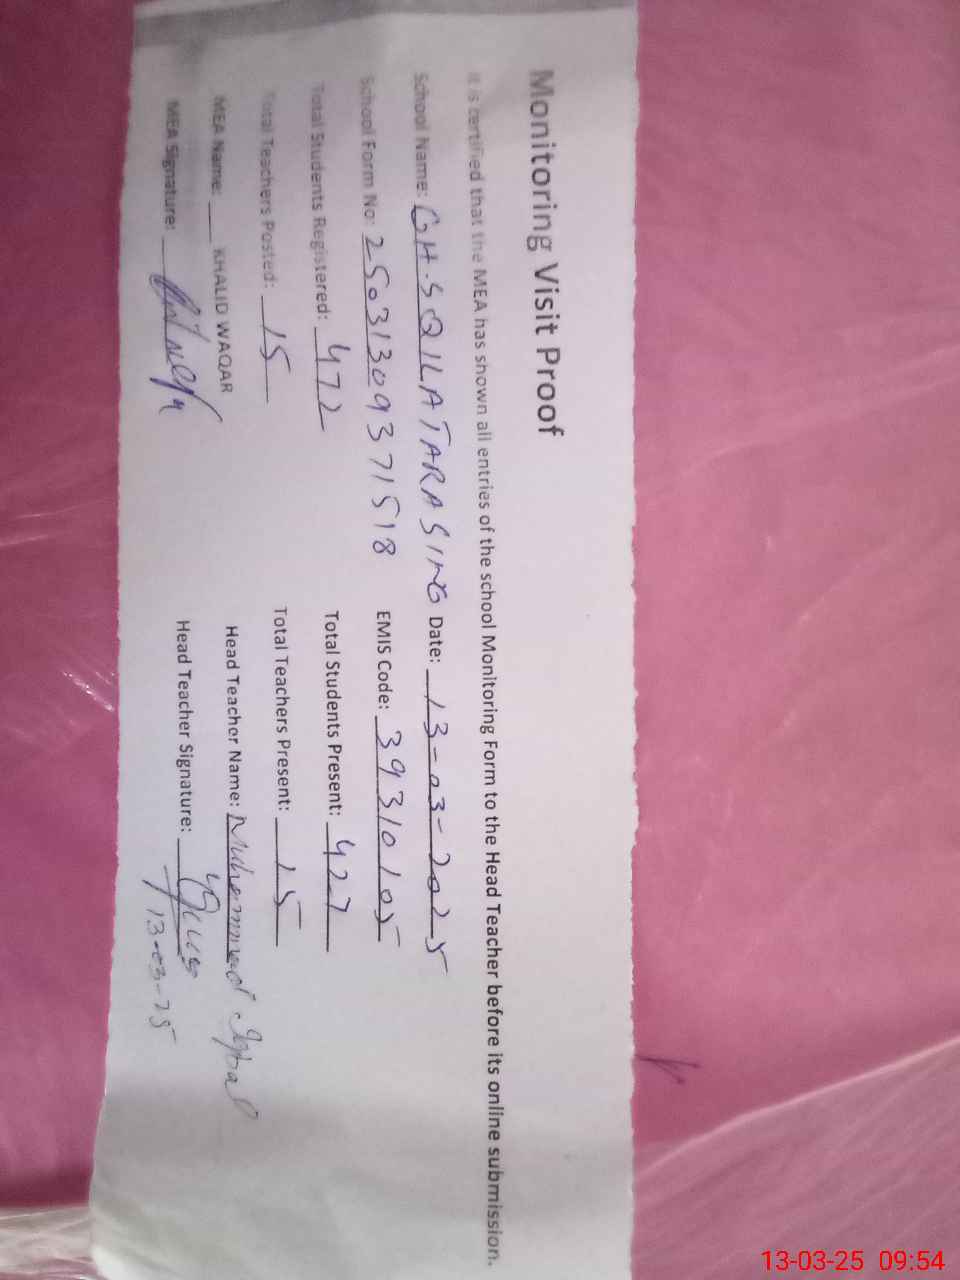 Monitoring Visit Proof
It is certified that the MEA has shown all entries of the school Monitoring Form to the Head Teacher before its online submission.
School Name: GH.S QILA TARA SING Date: 13-03-2025
School Form No: 25031309371518 EMIS Code: 39310105
Total Students Registered: 472 Total Students Present: 427
Total Teachers Posted: 15 Total Teachers Present: 15
MEA Name: KHALID WAQAR Head Teacher Name: Muhammad Iqbal
MEA Signature: Head Teacher Signature:
13-03-25
13-03-25 09:54